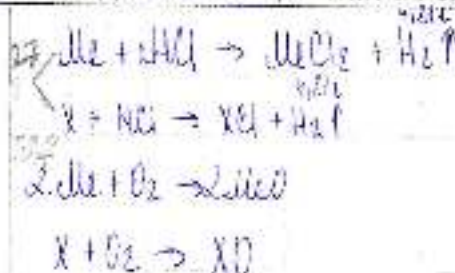 Me + 2HCl → MeCl₂ + H₂↑
X + HCl → XCl + H₂↑
2Me + O₂ → 2MeO
X + O₂ → XO